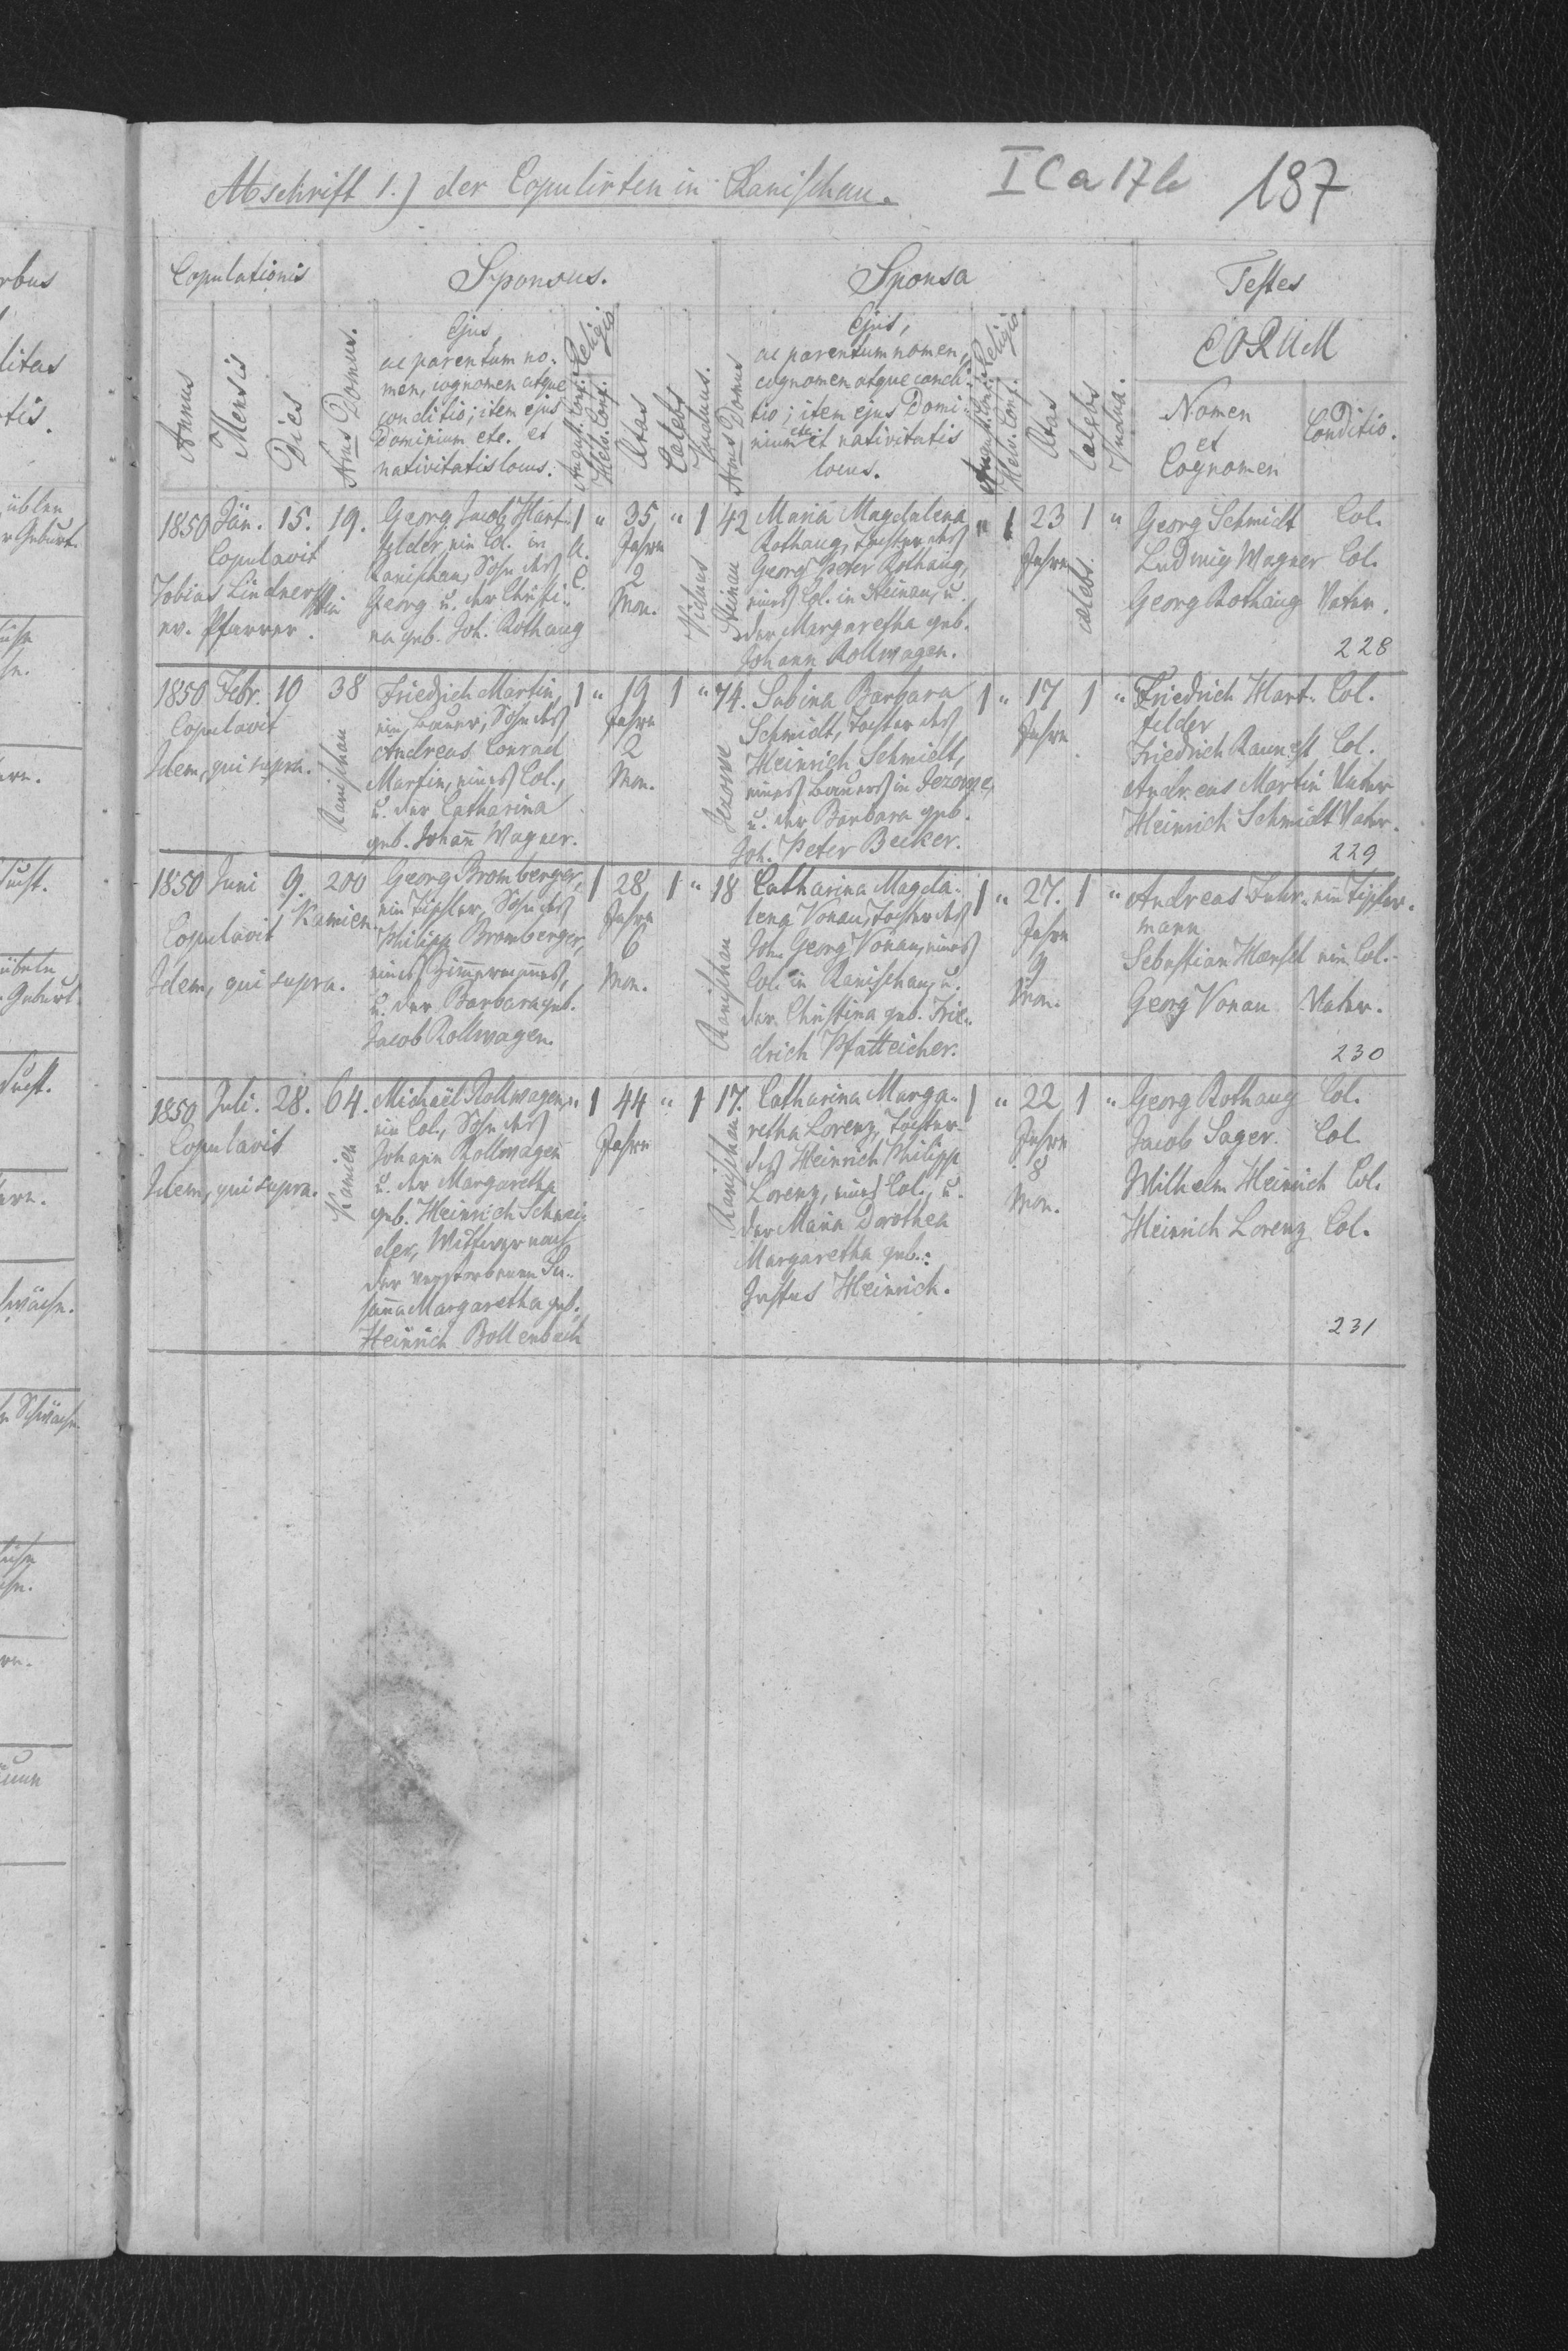 Abschrift 1.) der Copulirten in Ranischau.
I C a 17 b
187
Copulationis
Sponsus.
Sponsa
Testes
Annus
Mensis
Dies
Nrus Domus.
Ejus,
ac parentum no-
men, cognomen atque
conditio; item ejus
Dominium etc. et
nativitatis locus.
Religio
August. Conf.
Helv. Conf.
Ætas
Cælebs
Viduus.
Nrus Domus
Ejus,
ac parentum nomen,
cognomen atque condi-
tio; item ejus Domi-
nium etc. et nativitatis
locus.
Religio
August. Conf.
Helv. Conf.
Ætas
Cælebs
Vidua.
CORUM
Nomen
et
Cognomen
Conditio.
1850 Jän. 15. 19.
Copulavit
Tobias Lindner
ev. Pfarrer.
Georg Jacob Hart-
felder, ein Col. in
Ranischau, Sohn des
Georg u. der Christi-
na geb. Joh. Rothaug
1 " 35 " 1
A.
C.
Jahre
2
Mon.
Viduus
42
Steinau
Maria Magdalena
Rothaug, Tochter des
Georg Peter Rothaug,
eines Col. in Steinau, u.
der Margaretha geb.
Johann Rollwagen.
" 1 23 1 "
Jahre
cælebs.
Georg Schmidt Col.
Ludwig Wagner Col.
Georg Rothaug Vater.
228
1850 Febr. 10 38
Copulavit
Idem, qui supra.
Ranischau
Friedrich Martin,
ein Bauer, Sohn des
Andreas Conrad
Martin, eines Col.,
u. der Catharina
geb. Johann Wagner.
1 " 19 1 "
Jahre
2
Mon.
74.
Jezowe
Sabina Barbara
Schmidt, Tochter des
Heinrich Schmidt,
eines Bauers in Jezowe,
u. der Barbara geb.
Joh. Peter Becker.
1 " 17 1 "
Jahre
Friedrich Hart- Col.
felder
Friedrich Col.
Andreas Martin Vater
Heinrich Schmidt Vater.
229
1850 Juni 9. 200
Kamien.
Copulavit
Idem, qui supra.
Georg Bromberger,
ein Tischler, Sohn des
Philipp Bromberger,
eines Zimmermannes,
u. der Barbara geb.
Jacob Rollwagen.
1 28 1 "
Jahre
6
Mon.
18
Ranischau
Catharina Magda-
lena Vonau, Tochter des
Joh. Georg Vonau, eines
Col. in Ranischau, u.
der Christina geb. Frie-
drich Pfatteicher.
1 " 27. 1 "
Jahre
9
Mon.
Andreas Fuhr- ein Tischler.
mann
Sebastian Hansel ein Col.
Georg Vonau Vater.
230
1850 Juli. 28. 64.
Copulavit
Idem, qui supra.
Kamien
Michael Rollwagen,
ein Col., Sohn des
Johann Rollwagen
u. der Margaretha
geb. Heinrich Schnei-
der, Wittwer nach
der verstorbenen Su-
sanna Margaretha geb.
Heinrich Bollenbach
" 1 44 " 1
Jahre
17.
Ranischau
Catharina Marga-
retha Lorenz, Tochter
des Heinrich Philipp
Lorenz, eines Col., u.
der Maria Dorothea
Margaretha geb.:
Justus Heinrich.
1 " 22 1 "
Jahre
8
Mon.
Georg Rothaug Col.
Jacob Sager. Col.
Wilhelm Heinrich Col.
Heinrich Lorenz Col.
231